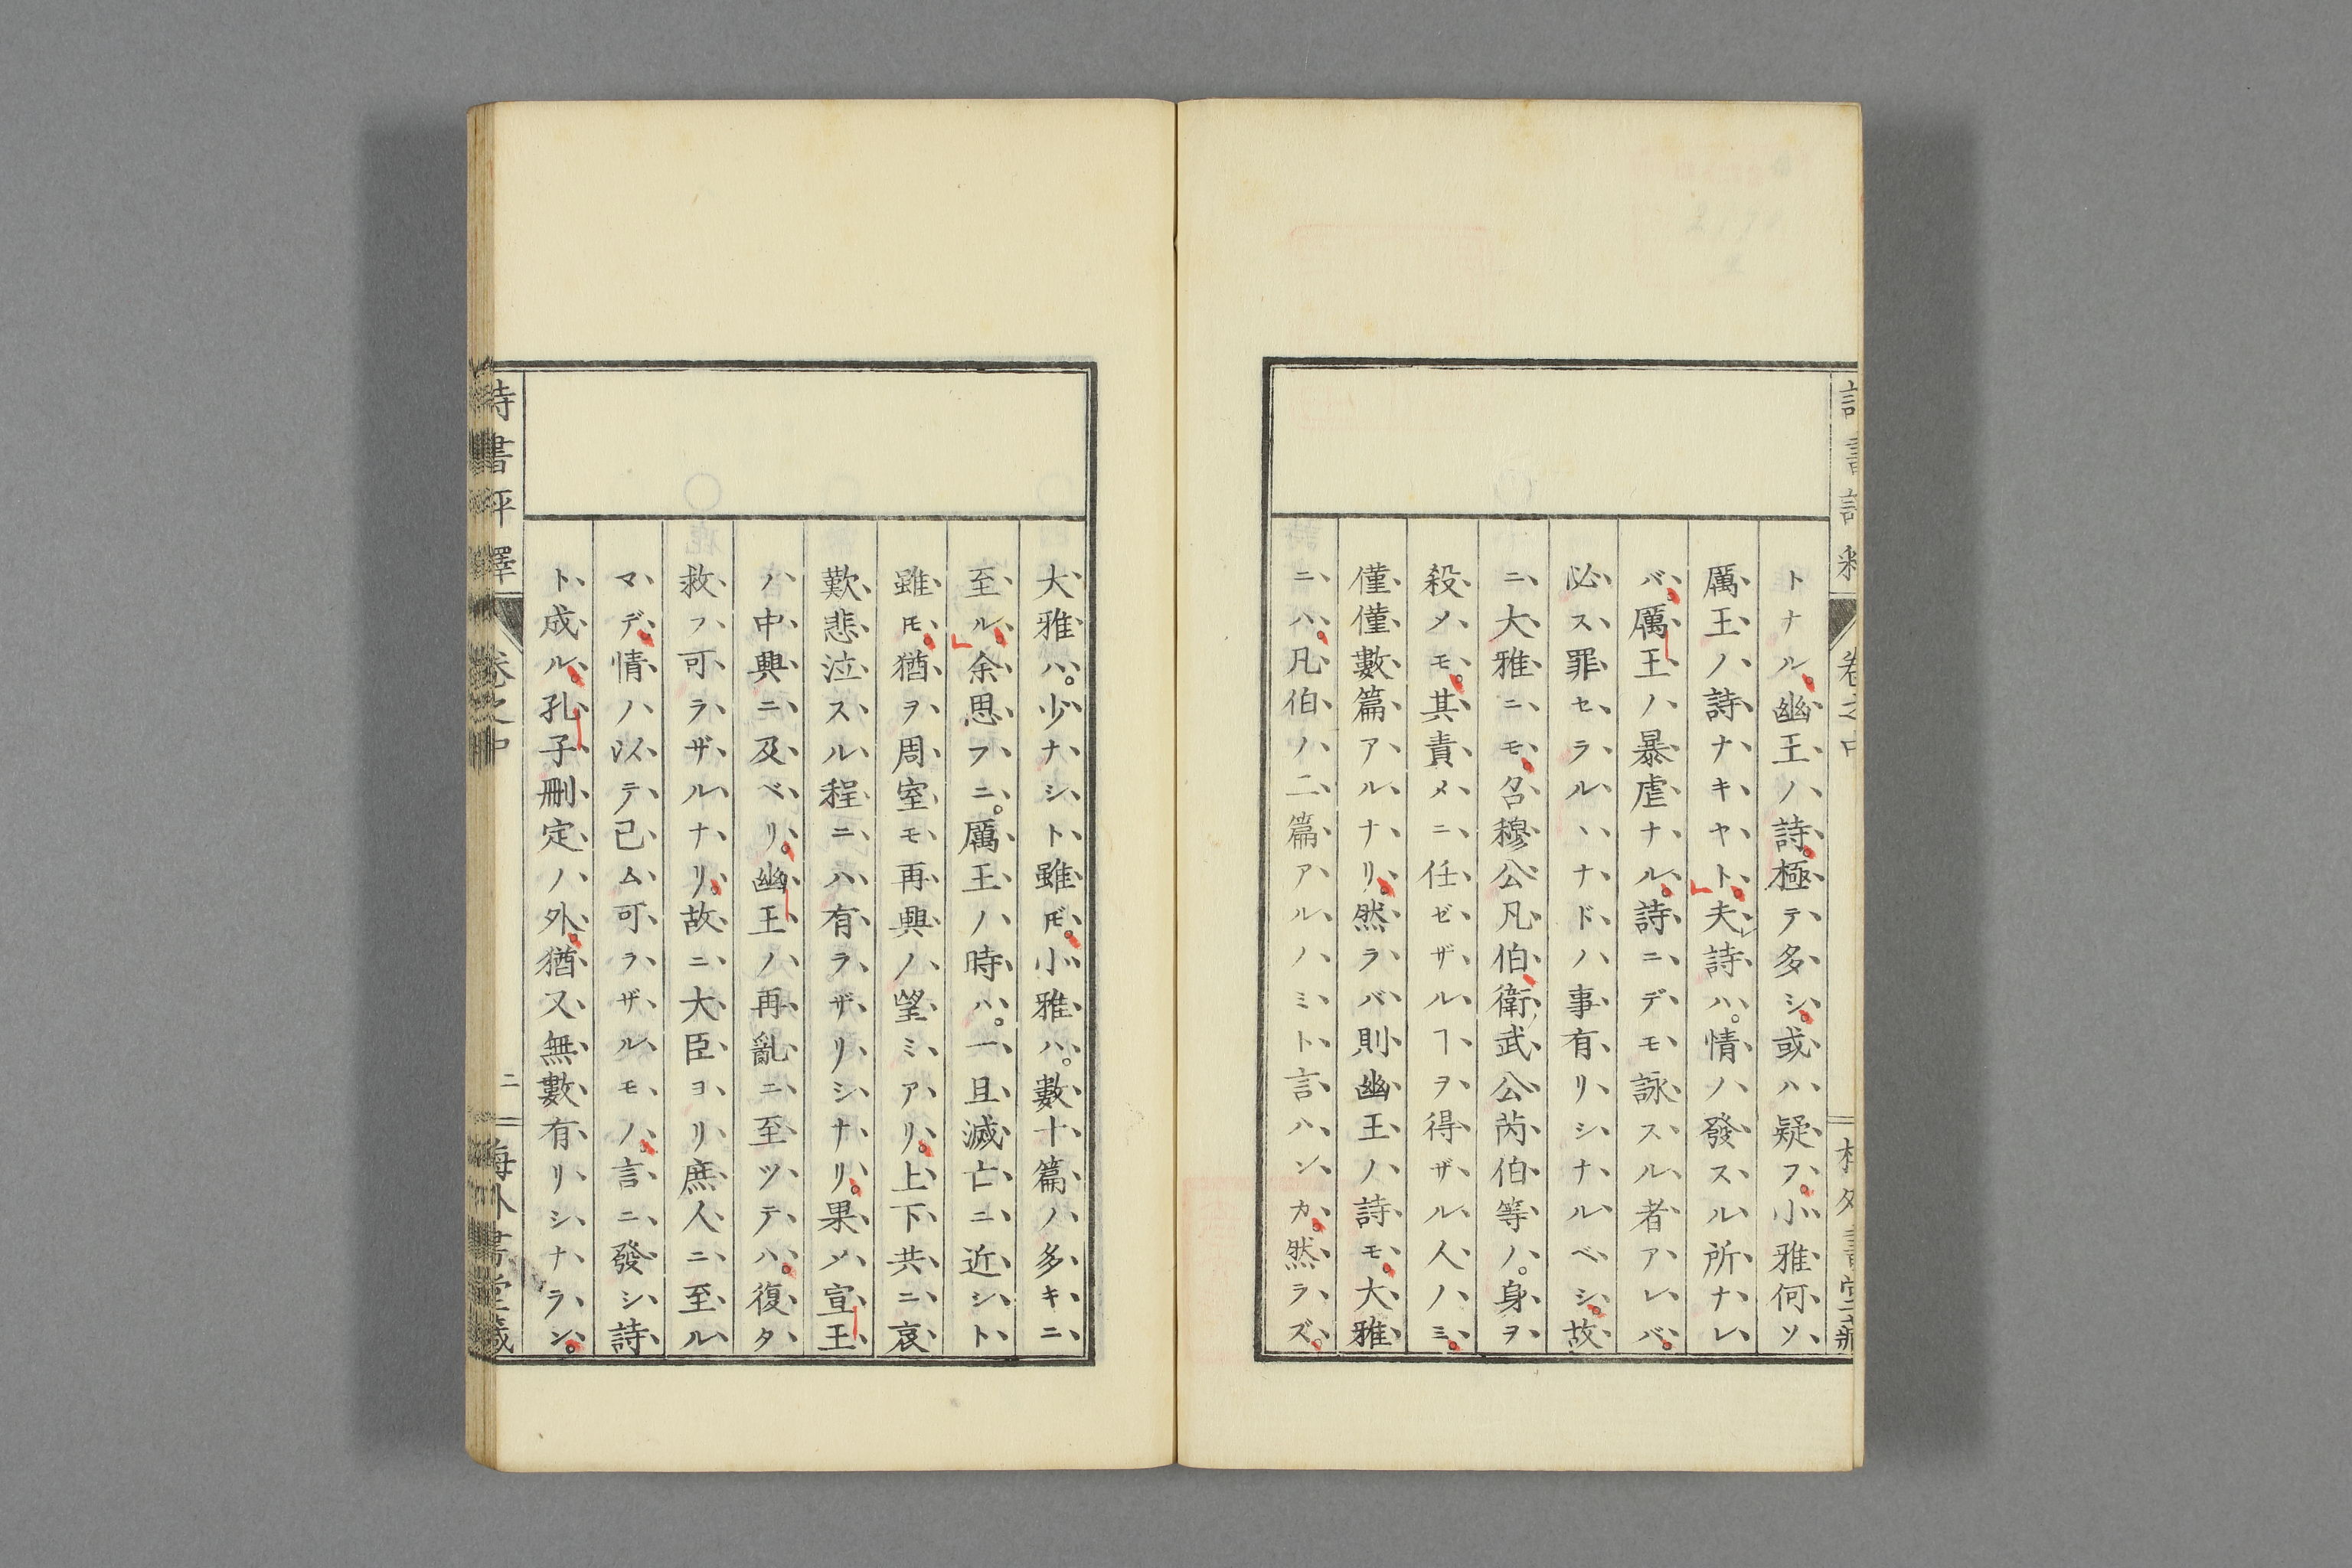 トナル。幽王ノ詩。極テ多シ。或ハ疑フ。小雅何ソ
厲王ノ詩ナキヤト。夫詩ハ。情ノ發スル所ナレ
バ。厲王ノ暴虐ナル。詩ニデモ詠スル者アレバ。
必ス罪セラルヽナドノ事有リシナルベシ。故
ニ大雅ニモ。召穆公凡伯。衛武公芮伯等ノ。身ヲ
殺メモ。其責メニ任ゼザルヿヲ得ザル人ノミ。
僅僅數篇アルナリ。然ラバ則幽王ノ詩モ。大雅
ニハ。凡伯ノ二篇アルノミト言ハンカ。然ラズ。
大雅ハ。少ナシト雖𪜈。小雅ハ。數十篇ノ多キニ
至ル。余思フニ。厲王ノ時ハ。一旦滅亡ニ近シト
雖𪜈。猶ヲ周室モ再興ノ望ミアリ。上下共ニ哀
歎悲泣スル程ニハ有ラザリシナリ。果メ宣王
ノ中興ニ及ベリ。幽王ノ再亂ニ至ツテハ。復タ
救フ可ラザルナリ。故ニ大臣ヨリ庶人ニ至ル
マデ。情ノ以テ已ム可ラザルモノ。言ニ發シ詩
ト成ル。孔子刪定ノ外。猶又無數有リシナラン。
詩書評釋 卷之中 二 海外書堂藏